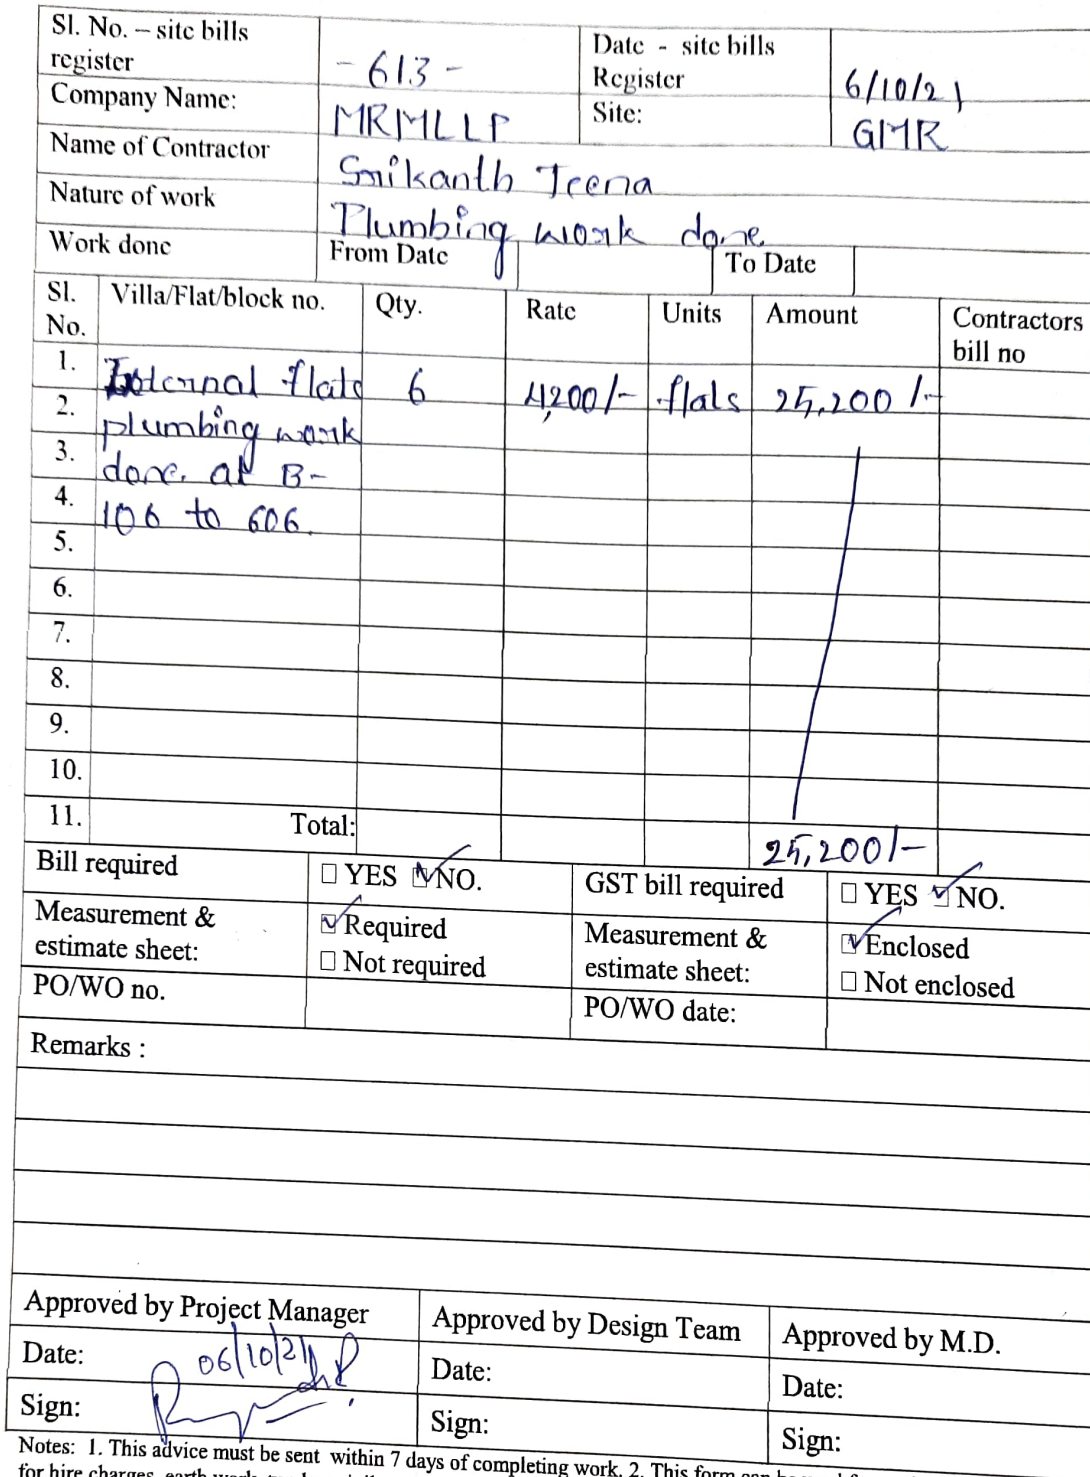 Sl. No. – site bills register - 613 - Date - site bills Register 6/10/21
Company Name: MRMLLP Site: GMR
Name of Contractor Srikanth Jeena
Nature of work Plumbing work done
Work done From Date To Date
Sl. No. Villa/Flat/block no. Qty. Rate Units Amount Contractors bill no
1. Internal flats 6 4,200/- flats 25,200/-
2. plumbing work
3. done. at B-
4. 106 to 606.
5.
6.
7.
8.
9.
10.
11. Total: 25,200/-
Bill required ☐ YES ☑ NO. GST bill required ☐ YES ☑ NO.
Measurement & estimate sheet: ☑ Required ☐ Not required Measurement & estimate sheet: ☑ Enclosed ☐ Not enclosed
PO/WO no. PO/WO date:
Remarks :
Approved by Project Manager Approved by Design Team Approved by M.D.
Date: 06/10/21 Date: Date:
Sign: Sign: Sign:
Notes: 1. This advice must be sent within 7 days of completing work. 2. This form can be
for hire charges, earth work,